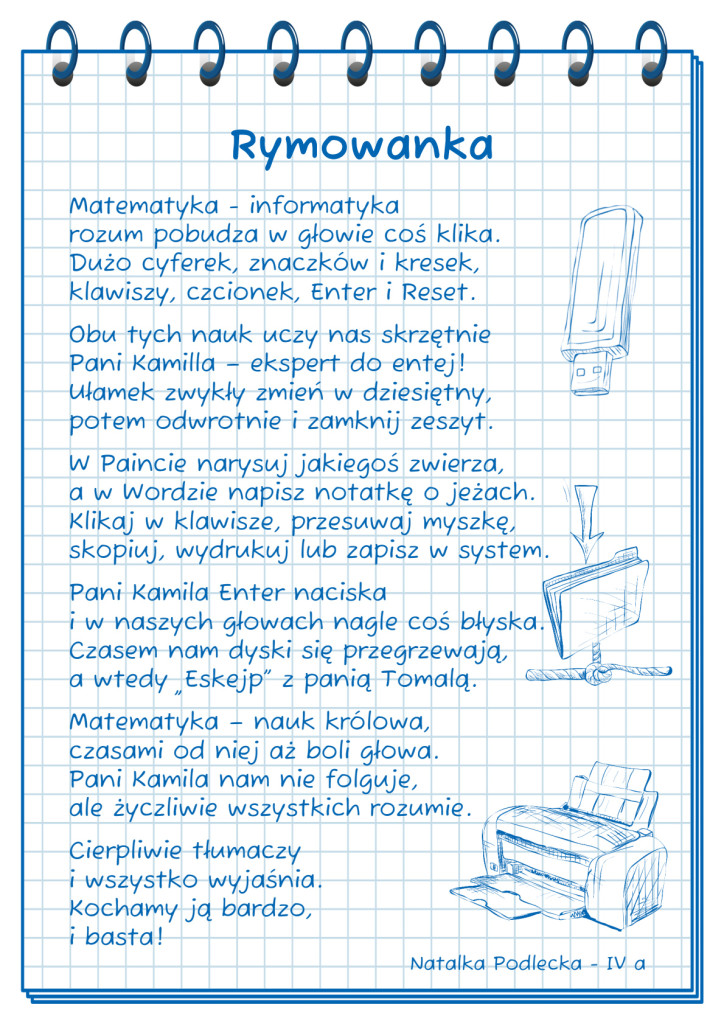 Rymowanka
Matematyka - informatyka
rozum pobudza w głowie coś klika.
Dużo cyferek, znaczków i kresek,
klawiszy, czcionek, Enter i Reset.
Obu tych nauk uczy nas skrzętnie
Pani Kamilla – ekspert do entej!
Ułamek zwykły zmień w dziesiętny,
potem odwrotnie i zamknij zeszyt.
W Paincie narysuj jakiegoś zwierza,
a w Wordzie napisz notatkę o jeżach.
Klikaj w klawisze, przesuwaj myszkę,
skopiuj, wydrukuj lub zapisz w system.
Pani Kamila Enter naciska
i w naszych głowach nagle coś błyska.
Czasem nam dyski się przegrzewają,
a wtedy „Eskejp” z panią Tomalą.
Matematyka – nauk królowa,
czasami od niej aż boli głowa.
Pani Kamila nam nie folguje,
ale życzliwie wszystkich rozumie.
Cierpliwie tłumaczy
i wszystko wyjaśnia.
Kochamy ją bardzo,
i basta!
Natalka Podlecka - IV a